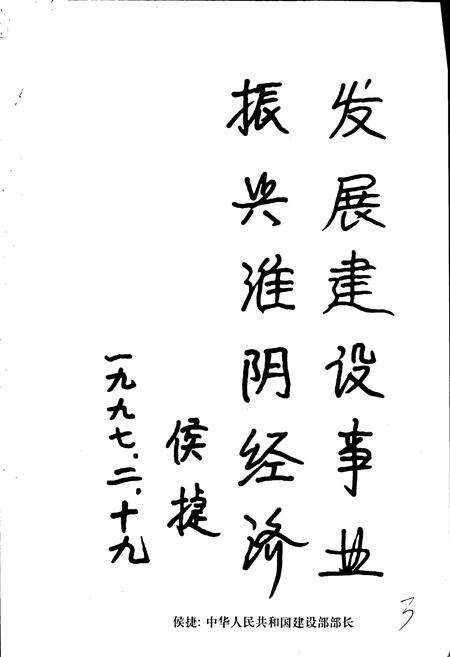 发展建设事业
振兴淮阴经济
侯捷
一九九七.二.十九
侯捷：中华人民共和国建设部部长
3